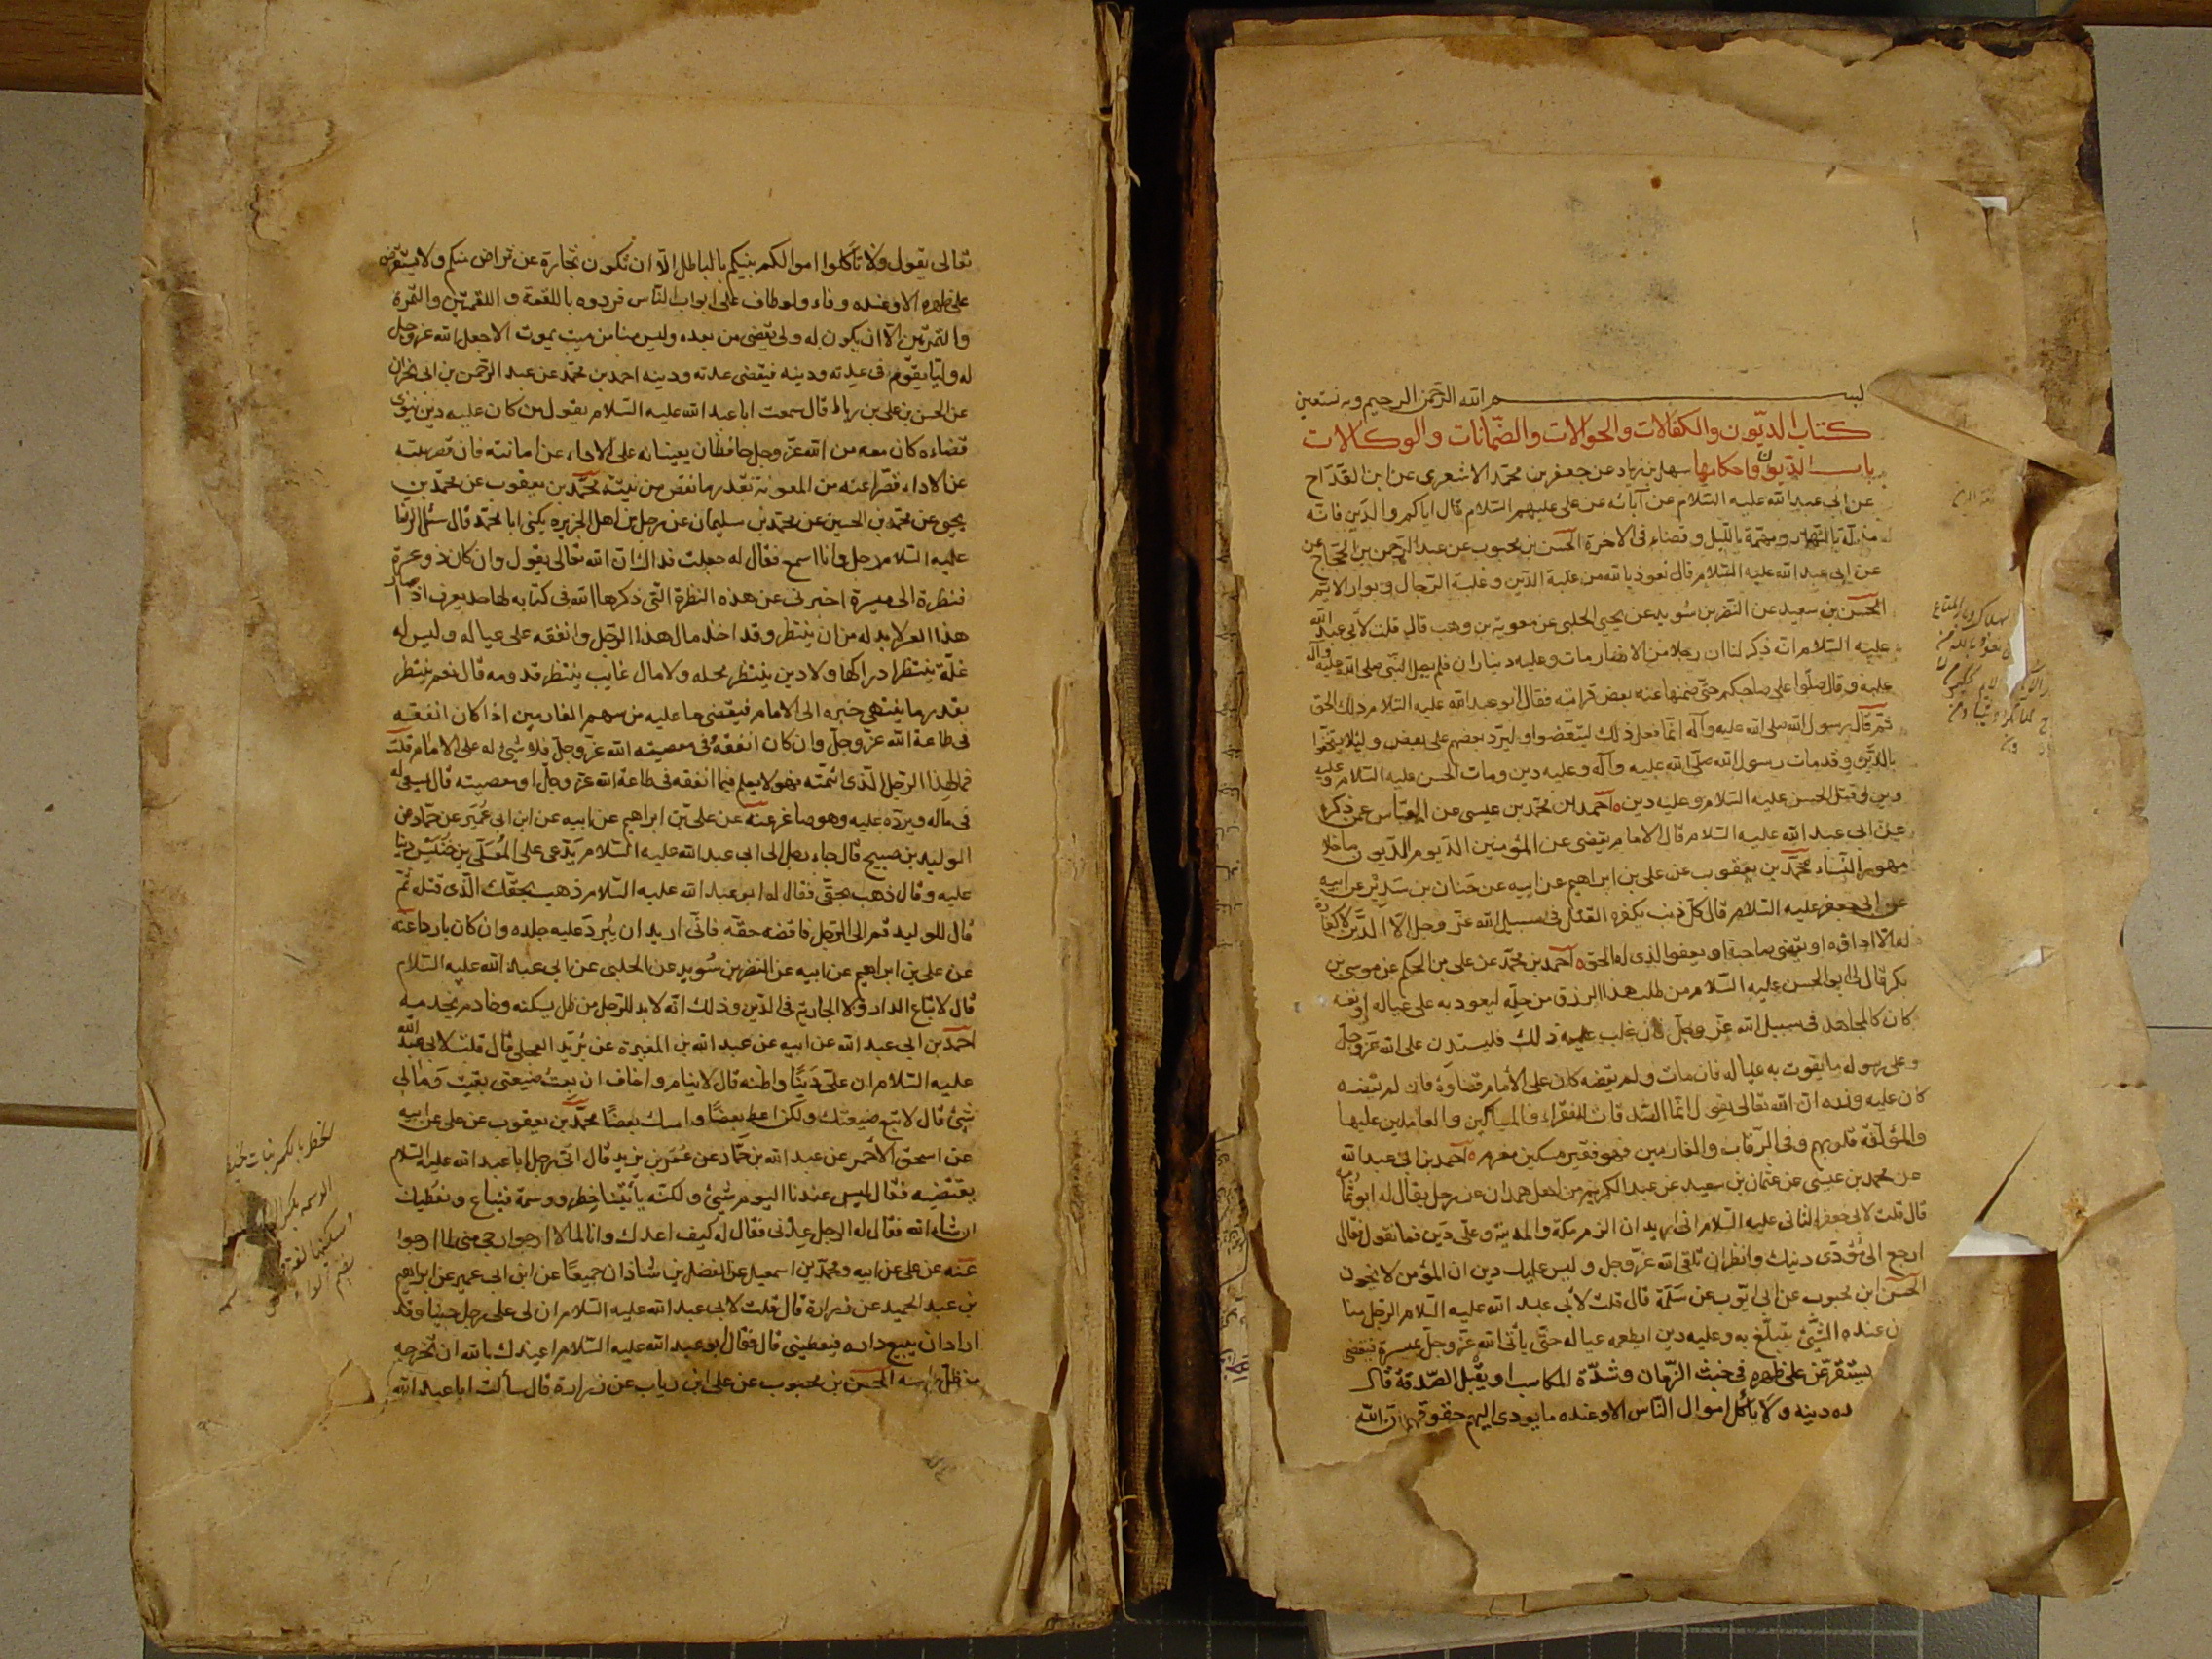 بسم الله الرحمن الرحيم وبه نستعين
كتاب الديون والكفالات والحوالات والضمانات والوكالات
باب الديون واحكامها سهل بن زياد عن جعفر بن محمد الاشعري عن ابن القداح
عن ابى عبد الله عليه السلام عن آبائه عن على عليهم السلام قال اياكم والدين فانه
مذلة بالنهار ومهمة بالليل وقضاء فى الاخرة الحسن بن محبوب عن عبد الرحمن بن الحجاج عن
عن ابى عبد الله عليه السلام قال نعوذ بالله من غلبة الدين وغلبة الرجال وبوار الايم
الحسين بن سعيد عن النضر بن سويد عن يحيى الحلبى عن معوية بن وهب قال قلت لابى عبد الله
عليه السلام انه ذكر لنا ان رجلا من الانصار مات وعليه ديناران فلم يصل النبى صلى الله عليه وآله
عليه وقال صلوا على صاحبكم حتى ضمنها عنه بعض قرابته فقال ابو عبد الله عليه السلام ذلك الحق
ثم قال رسول الله صلى الله عليه وآله انما فعل ذلك ليتعضوا وليرد بعضهم على بعض ولئلا يستخفوا
بالدين وقد مات رسول الله صلى الله عليه وآله وعليه دين ومات الحسن عليه السلام وعليه
دين وقتل الحسين عليه السلام وعليه دين احمد بن محمد بن عيسى عن العباس عمن ذكره
عن ابى عبد الله عليه السلام قال الامام يقضى عن المؤمنين الديون ما خلا
مهور النساء محمد بن يعقوب عن على بن ابراهيم عن ابيه عن حنان بن سدير عن ابيه
عن ابى جعفر عليه السلام قال كل ذنب يكفره القتل فى سبيل الله عز وجل الا الدين لا كفارة
له الا اداؤه او يقضى صاحبه او يعفو الذى له الحق احمد بن محمد عن على بن الحكم عن موسى بن
بكر قال قال لى ابو الحسن عليه السلام من طلب هذا الرزق من حله ليعود به على عياله ونفسه
كان كالمجاهد فى سبيل الله عز وجل فان غلب عليه ذلك فليستدن على الله عز وجل
وعلى رسوله ما يقوت به عياله فان مات ولم يقضه كان على الامام قضاؤه فان لم يقضه
كان عليه وزره ان الله تعالى يقول انما الصدقات للفقراء والمساكين والعاملين عليها
والمؤلفة قلوبهم وفى الرقاب والغارمين فهو فقير مسكين مغرم احمد بن ابى عبد الله
عن محمد بن عيسى عن عثمان بن سعيد عن عبد الكريم من اهل همدان عن رجل يقال له ابو ثمامة
قال قلت لابى جعفر الثانى عليه السلام انى اريد ان الزم مكة والمدينة وعلى دين فما تقول فقال
ارجع الى مؤدى دينك وانظر ان تلقى الله عز وجل وليس عليك دين ان المؤمن لا يخون
الحسن ابن محبوب عن ابى ايوب عن سلمة قال قلت لأبى عبد الله عليه السلام الرجل منا
ن عنده الشئ يتبلغ به وعليه دين ايطعمه عياله حتى يأتى الله عز وجل بميسرة فيقضى
يستقرض على ظهره فى خبث الزمان وشدة المكاسب او يقبل الصدقة قال
ده دينه ولا يأكل اموال الناس الا وعنده ما يودى اليهم حقوقهم ان الله
تعالى يقول ولا تأكلوا اموالكم بينكم بالباطل الا ان تكون تجارة عن تراض منكم ولا يستقرض
على ظهره الا وعنده وفاء ولو طاف على ابواب الناس فردوه باللقمة واللقمتين والتمرة
والتمرتين الا ان يكون له ولى يقضى من بعده وليس منا من ميت يموت الا جعل الله عز وجل
له وليا يقوم فى عدته ودينه فيقضى عدته ودينه احمد بن محمد عن عبد الرحمن بن ابى نجران
عن الحسن بن على بن رباط قال سمعت ابا عبد الله عليه السلام يقول من كان عليه دين ينوى
قضاءه كان معه من الله عز وجل حافظان يعينانه على الاداء عن امانته فان قصرت نيته
عن الاداء قصرا عنه من المعونة بقدر ما نقص من نيته محمد بن يعقوب عن محمد بن
يحيى عن محمد بن الحسين عن محمد بن سليمان عن رجل من اهل الجزيره يكنى ابا محمد قال سئل الرضا
عليه السلام رجل وانا اسمع فقال له جعلت فداك ان الله تعالى يقول وان كان ذو عسرة
فنظرة الى ميسرة اخبرنى عن هذه النظرة التى ذكرها الله فى كتابه لها حد يعرف اذا صار
هذا المعسر لا بد له من ان ينتظر وقد اخذ مال هذا الرجل وانفقه على عياله وليس له
غلة ينتظر ادراكها ولا دين ينتظر محله ولا مال غايب ينتظر قدومه قال نعم ينتظر
بقدر ما ينتهى خبره الى الامام فيقضى ما عليه من سهم الغارمين اذا كان انفقه
فى طاعة الله عز وجل وان كان انفقه فى معصية الله عز وجل فلا شئ له على الامام قلت
فما لهذا الرجل الذى ائتمنه وهو لا يعلم فيما انفقه فى طاعة الله عز وجل او معصيته قال يسعى له
فى ماله ويرده عليه وهو صاغر عنه عن على بن ابراهيم عن ابيه عن ابن ابى عمير عن حماد عن
الوليد بن صبيح قال جاء رجل الى ابى عبد الله عليه السلام يدعى على المعلى بن خنيس دينا
عليه وقال ذهب بحقى فقال له ابو عبد الله عليه السلام ذهب بحقك الذى قتله ثم
قال للوليد قم الى الرجل فاقضه حقه فانى اريد ان يبرد عليه جلده وان كان باردا عنه
عن على بن ابراهيم عن ابيه عن النضر بن سويد عن الحلبى عن ابى عبد الله عليه السلام
قال لا تباع الدار ولا الجارية فى الدين وذلك انه لا بد للرجل من ظل يسكنه وخادم يخدمه
احمد بن ابى عبد الله عن ابيه عن عبد الله بن المغيرة عن بريد العجلى قال قلت لابى عبد الله
عليه السلام ان على دينا واظنه قال لايتام واخاف ان بعت ضيعتى بقيت وما لى
شئ قال لا تبع ضيعتك ولكن اعط بعضا وامسك بعضا محمد بن يعقوب عن على عن ابيه
عن اسحق الأحمر عن عبد الله بن حماد عن عمر بن يزيد قال اتى رجل ابا عبد الله عليه السلام
يقتضيه فقال ليس عندنا اليوم شئ ولكنه يأتينا خطر ووسمة فتباع ونعطيك
ان شاء الله فقال له الرجل عدنى فقال له كيف اعدك وانا لما لا ارجوا ارجى منى لما ارجوا
عنه عن على عن ابيه ومحمد بن اسمعيل عن الفضل بن شاذان جميعا عن ابن ابى عمير عن ابراهيم
بن عبد الحميد عن زرارة قال قلت لابى عبد الله عليه السلام ان لى على رجل دينا وقد
اراد ان يبيع داره فيعطينى قال فقال ابو عبد الله عليه السلام اعيذك بالله ان تخرجه
من ظل راسه الحسن بن محبوب عن على ابن رياب عن زرارة قال سألت ابا عبد الله